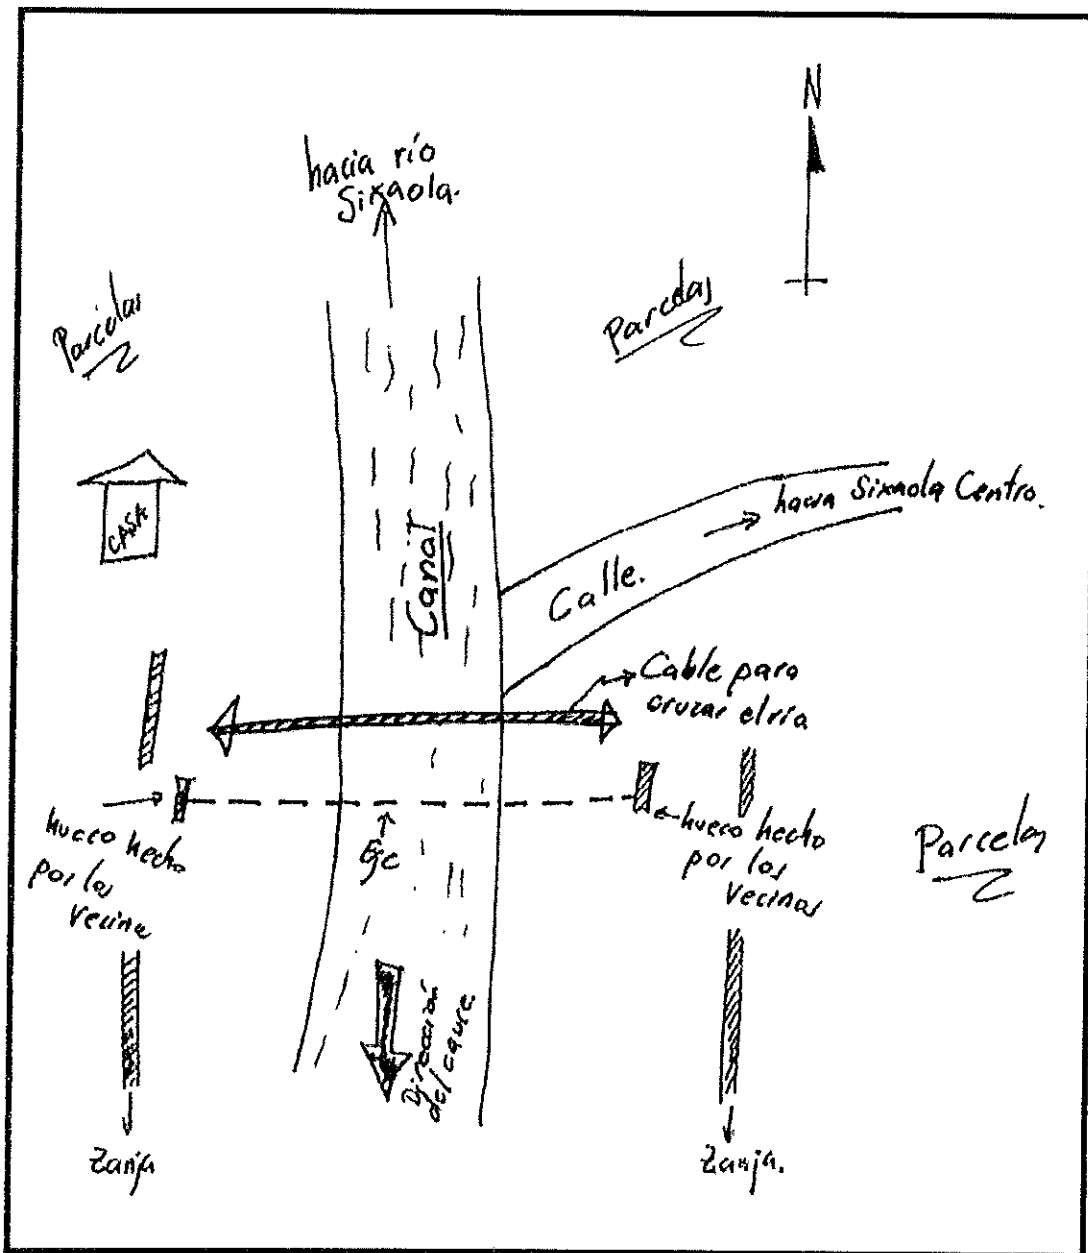 N
hacia río
Sixaola.
Parcelas
Parcelas
CASA
Canal
hacia Sixaola Centro.
Calle.
Cable para
cruzar el río
hueco hecho
por los
vecinos
Eje
hueco hecho
por los
vecinos
Parcelas
Dirección
del cauce.
Zanja
Zanja.